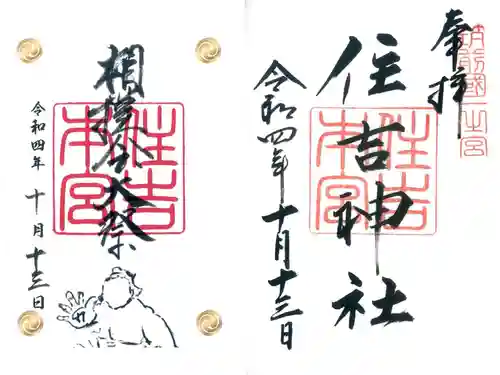 奉拝
筑前國一之宮
住吉神社
住吉本宮
令和四年十月十三日
相撲会大祭
住吉本宮
令和四年十月十三日